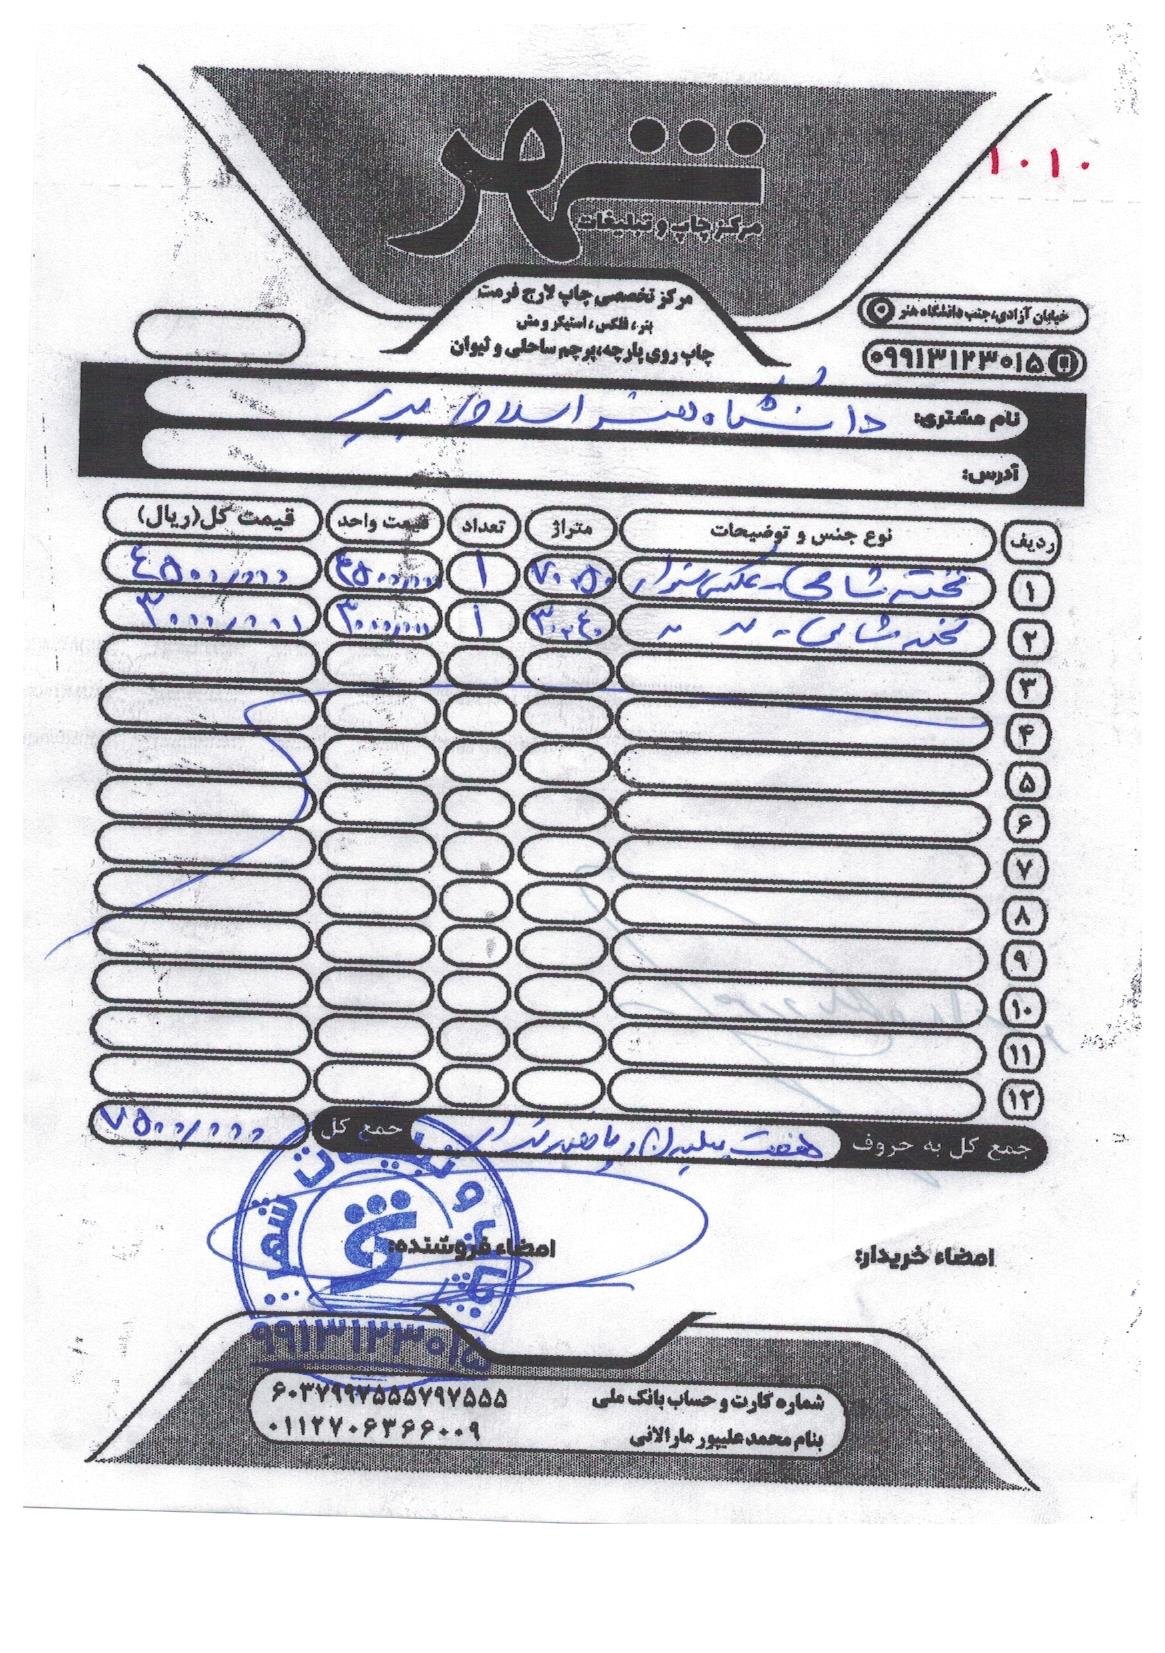 شهر
مرکز چاپ و تبلیغات
۱۰۱۰
مرکز تخصصی چاپ لارج فرمت
بنر، فلکس، استیکر و مش
چاپ روی پارچه، پرچم ساحلی و لیوان
خیابان آزادی، جنب دانشگاه هنر
۰۹۹۱۳۱۲۳۰۱۵
نام مشتری: دانشگاه هنر اسلامی تبریز
آدرس:
ردیف نوع جنس و توضیحات متراژ تعداد قیمت واحد قیمت کل (ریال)
۱ تخته شاسی - عکس ۷۰*۵۰ ۱ ۴۵۰۰/۰۰۰ ۴۵۰۰/۰۰۰
۲ تخته شاسی - 〃 〃 ۳۰*۴۰ ۱ ۳۰۰۰/۰۰۰ ۳۰۰۰/۰۰۰
۳
۴
۵
۶
۷
۸
۹
۱۰
۱۱
۱۲
جمع کل به حروف هفت میلیون و پانصد هزار جمع کل ۷۵۰۰/۰۰۰
امضاء خریدار: امضاء فروشنده:
چاپ و تبلیغات شهر
۹۹۱۳۱۲۳۰۱۵
شماره کارت و حساب بانک ملی ۶۰۳۷۹۹۷۵۵۵۷۹۷۵۵۵
بنام محمد علیپور مارالانی ۰۱۱۲۷۰۶۳۶۶۰۰۹